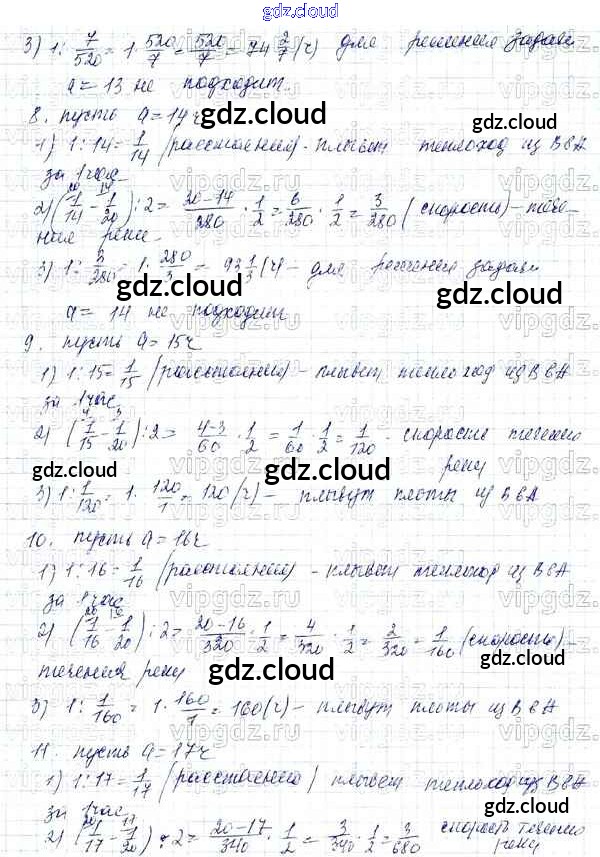 gdz.cloud
3) 1 : 7/520 = 1 · 520/7 = 520/7 = 74 2/7 (ч) для решения задачи
a = 13 не подходит.
8. пусть a = 14 ч
1) 1 : 14 = 1/14 (расстояния) - плывет теплоход из B в A
за 1 час
2) (1/14 - 1/20) : 2 = 20-14/280 · 1/2 = 6/280 · 1/2 = 3/280 (скорость) - тече-
ния реки
3) 1 : 3/280 = 1 · 280/3 = 93 1/3 (ч) - для решения задачи
a = 14 не подходит
9. пусть a = 15 ч
1) 1 : 15 = 1/15 (расстояния) - плывет теплоход из B в A
за 1 час
2) (1/15 - 1/20) : 2 = 4-3/60 · 1/2 = 1/60 · 1/2 = 1/120 - скорость течения
реки
3) 1 : 1/120 = 1 · 120/1 = 120 (ч) - плывут плоты из B в A
10. пусть a = 16 ч
1) 1 : 16 = 1/16 (расстояния) - плывет теплоход из B в A
за 1 час
2) (1/16 - 1/20) : 2 = 20-16/320 · 1/2 = 4/320 · 1/2 = 2/320 = 1/160 (скорость) -
течения реки
3) 1 : 1/160 = 1 · 160/1 = 160 (ч) - плывут плоты из B в A
11. пусть a = 17 ч
1) 1 : 17 = 1/17 (расстояние) плывет теплоход из B в A
за 1 час
2) (1/17 - 1/20) : 2 = 20-17/340 · 1/2 = 3/340 · 1/2 = 3/680 скорость течения
реки